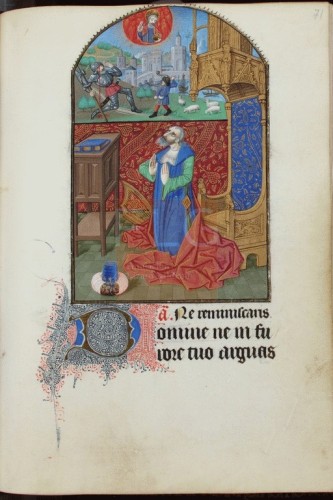 ā. Ne reminiscaris
Domine ne in fu
rore tuo arguas